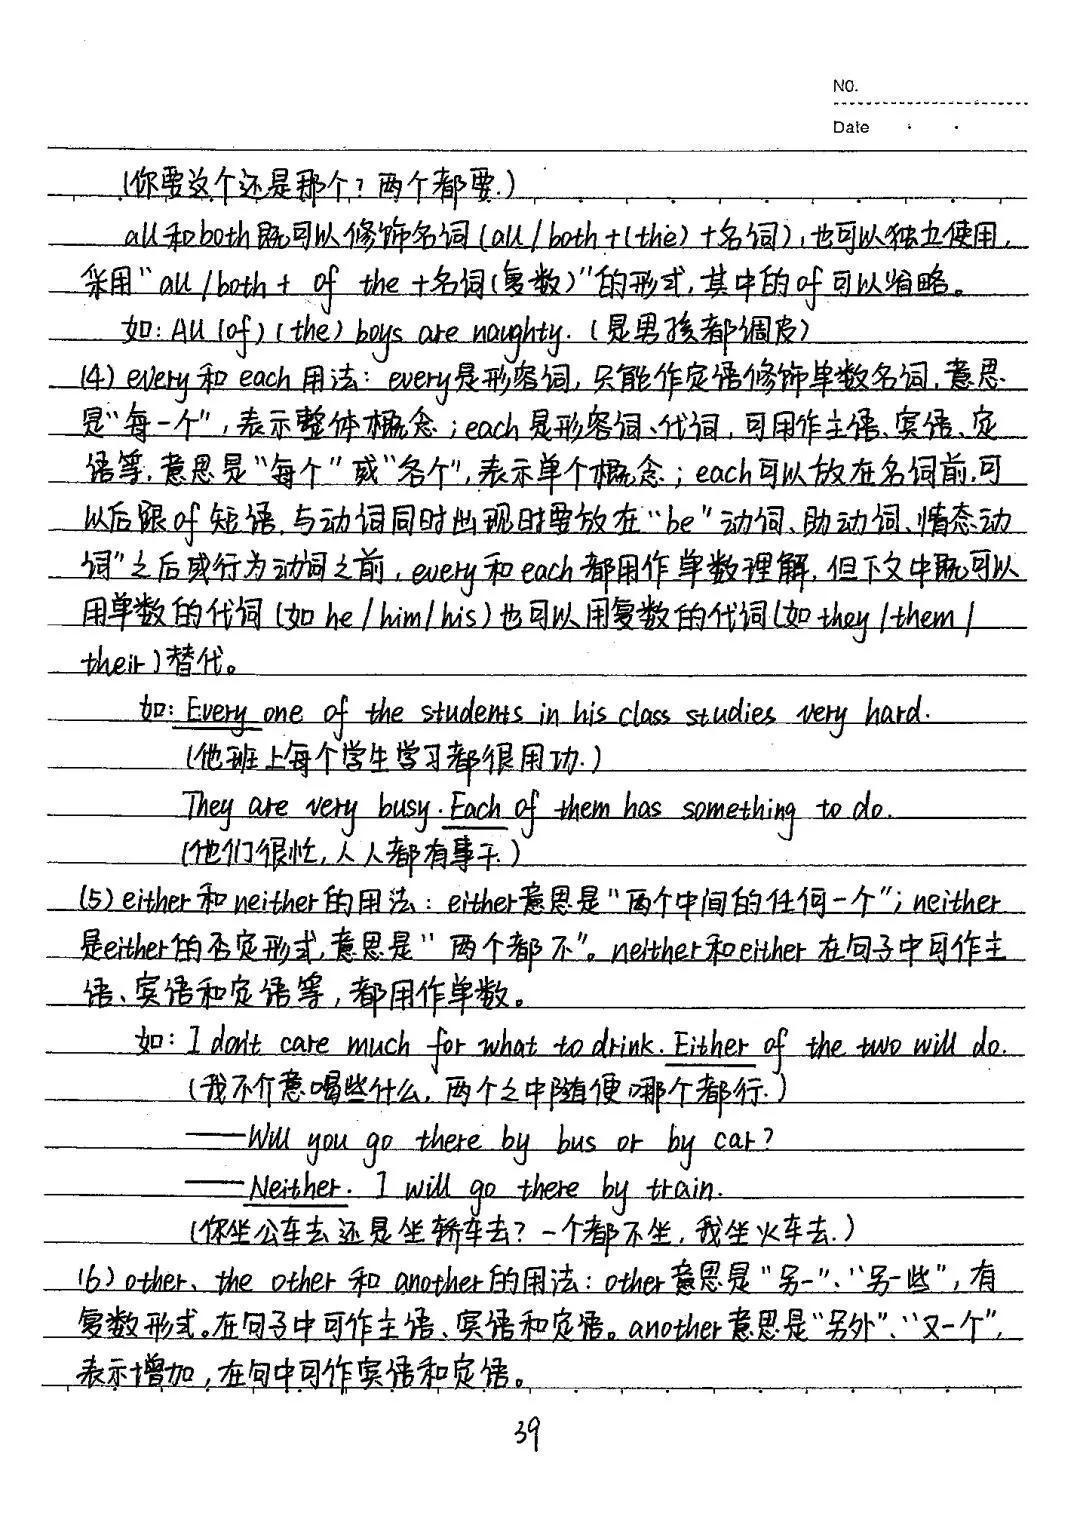 NO.
Date
(你要这个还是那个?两个都要.)
all和both既可以修饰名词(all/both+(the)+名词),也可以独立使用,
采用"all/both+ of the +名词(复数)"的形式,其中的of可以省略。
如: All (of) (the) boys are naughty. (是男孩都调皮)
(4) every和each用法: every是形容词,只能作定语修饰单数名词,意思
是"每一个",表示整体概念;each是形容词、代词,可用作主语、宾语、定
语等,意思是"每个"或"各个",表示单个概念;each可以放在名词前,可
以后跟of短语,与动词同时出现时要放在"be"动词、助动词、情态动
词"之后或行为动词之前,every和each都用作单数理解,但下文中既可以
用单数的代词(如he/him/his)也可以用复数的代词(如they/them/
their)替代。
如: Every one of the students in his class studies very hard.
(他班上每个学生学习都很用功.)
They are very busy. Each of them has something to do.
(他们很忙,人人都有事干.)
(5) either和neither的用法: either意思是"两个中间的任何一个";neither
是either的否定形式,意思是"两个都不"。neither和either在句子中可作主
语、宾语和定语等,都用作单数。
如: I don't care much for what to drink. Either of the two will do.
(我不介意喝些什么,两个之中随便哪个都行.)
——Will you go there by bus or by car?
——Neither. I will go there by train.
(你坐公车去还是坐轿车去?一个都不坐,我坐火车去.)
(6) other、the other和another的用法: other意思是"另一"、"另一些",有
复数形式。在句子中可作主语、宾语和定语。another意思是"另外"、"又一个",
表示增加,在句中可作宾语和定语。
39